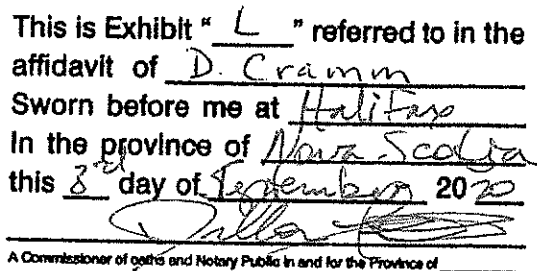 This is Exhibit " L " referred to in the
affidavit of D. Cramm
Sworn before me at Halifax
In the province of Nova Scotia
this 3rd day of September 2020
A Commissioner of oaths and Notary Public in and for the Province of